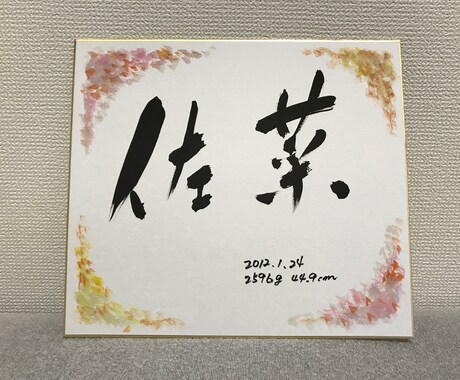 佐菜
2012.1.24
2596g 44.9cm